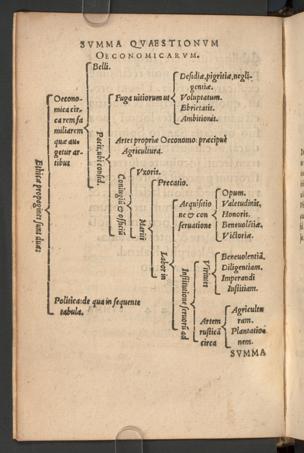 SVMMA QVAESTIONVM
OECONOMICARVM.
Ethicæ propagines sunt duæ
Oecono-
mica cir-
ca rem fa
miliarem
quæ au-
getur ar-
tibus
Belli.
Pacis, ubi consid.
Fuga uitiorum ut
Desidiæ, pigritiæ, negli-
gentiæ.
Voluptatum.
Ebrietatis.
Ambitionis.
Artes propriæ Oeconomo: præcipuè
Agricultura.
Coniugiũ & officiũ
Vxoris.
Mariti
Precatio.
Labor in
Acquisitio
ne & con
seruatione
Opum.
Valetudinis,
Honoris.
Beneuolẽtiæ.
Victoriæ.
Institutione seruorũ ad
Virtutes
Beneuolentiã.
Diligentiam.
Imperandi
Iustitiam.
Artem
rusticã
circa
Agricultu
ram.
Plantatio
nem.
Politica: de qua in sequente
tabula.
SVMMA